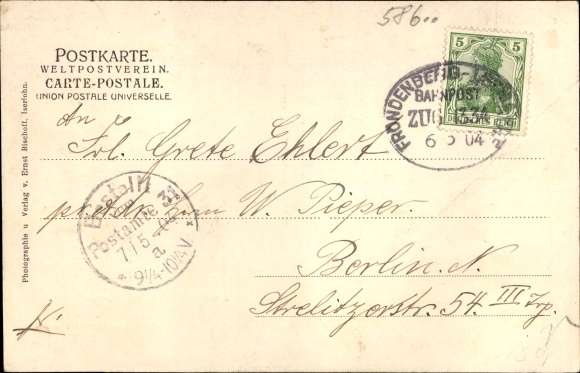 5860
POSTKARTE.
WELTPOSTVEREIN.
CARTE-POSTALE.
UNION POSTALE UNIVERSELLE.
5 5
DEUTSCHES REICH
FRÖNDENBERG-
BAHNPOST
ZUG
6 5 04
An
Frl. Grete Ehlert
W. Pieper.
Berlin. N.
Strelitzerstr. 54 III Trp.
Bestellt
vom
Postamte
7/5
a
* 9¼-10¼ V
Photographie u Verlag v. Ernst Bischoff, Iserlohn.